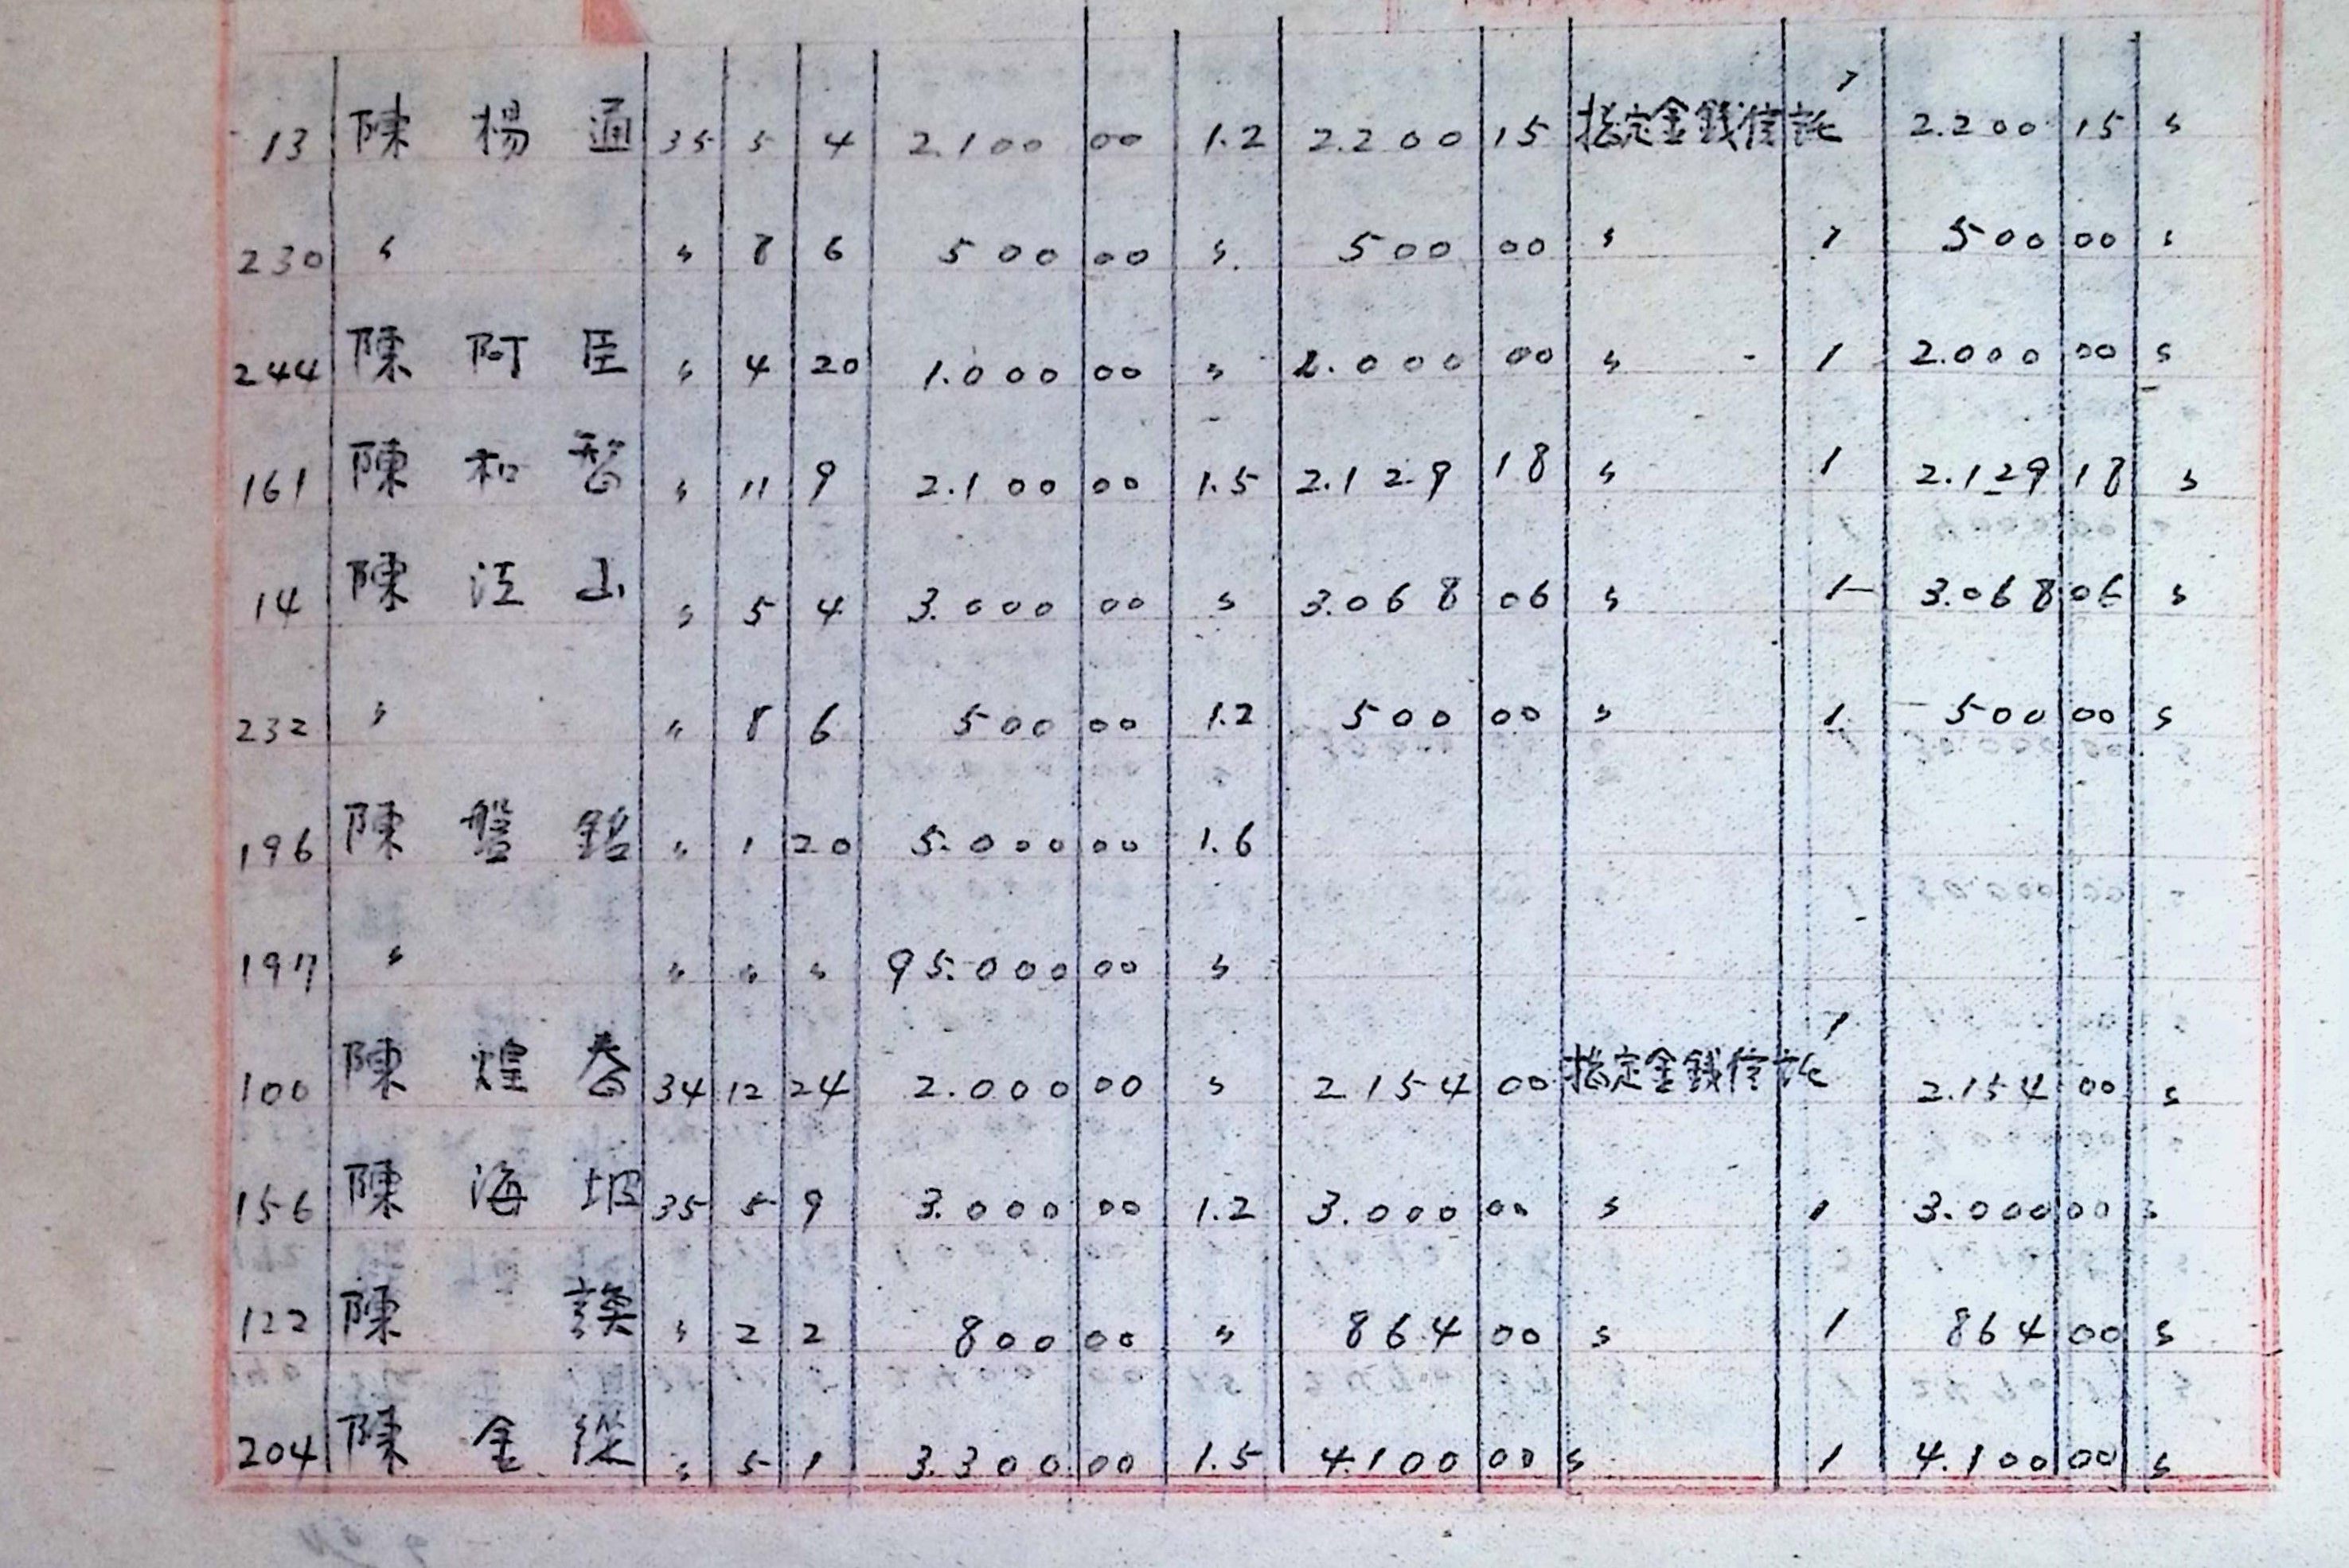 13 陳楊通 35 5 4 2.100 00 1.2 2.200 15 指定金銭信託 1 2.200 15 〃
230 〃 〃 8 6 500 00 〃 500 00 〃 1 500 00 〃
244 陳阿臣 〃 4 20 1.000 00 〃 2.000 00 〃 1 2.000 00 〃
161 陳和 〃 11 9 2.100 00 1.5 2.129 18 〃 1 2.129 18 〃
14 陳江山 〃 5 4 3.000 00 〃 3.068 06 〃 1 3.068 06 〃
232 〃 〃 8 6 500 00 1.2 500 00 〃 1 500 00 〃
196 陳盤銘 〃 1 20 5.000 00 1.6
197 〃 〃 〃 〃 95.000 00 〃
100 陳煌 34 12 24 2.000 00 〃 2154 00 指定金銭信託 1 2.154 00 〃
156 陳海 35 5 9 3.000 00 1.2 3.000 00 〃 1 3.000 00 〃
122 陳 〃 2 2 800 00 〃 864 00 〃 1 864 00 〃
204 陳金從 〃 5 1 3.300 00 1.5 4.100 00 〃 1 4.100 00 〃